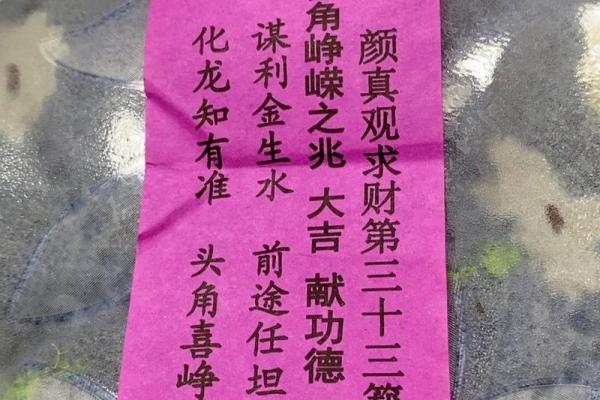 颜真观求财第三十三
角峥嵘之兆 大吉 献功德
谋利金生水 前途任坦
化龙知有准 头角喜峥